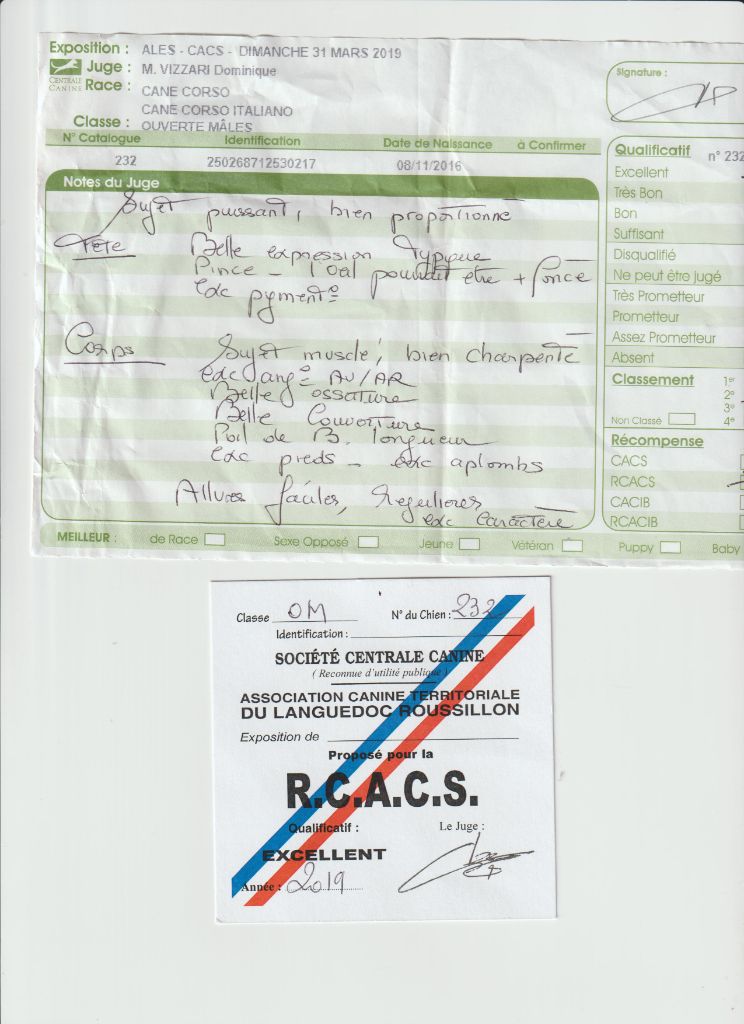 Exposition : ALES - CACS - DIMANCHE 31 MARS 2019
Juge : M. VIZZARI Dominique
CENTRALE CANINE
Race : CANE CORSO
CANE CORSO ITALIANO
Classe : OUVERTE MÂLES
N° Catalogue Identification Date de Naissance à Confirmer
232 250268712530217 08/11/2016
Notes du Juge
Sujet puissant, bien proportionné
Tête Belle expression Typique
Pince - l'oeil pourrait être + foncé
exc pigment°
Corps Sujet musclé, bien charpenté
exc ang° AV/AR
Belle ossature
Belle Couverture
Poil de B. longueur
exc pieds - exc aplombs
Allures faciles, régulières
exc caractère
MEILLEUR : de Race Sexe Opposé Jeune Vétéran Puppy Baby
Signature :
Qualificatif n° 232
Excellent
Très Bon
Bon
Suffisant
Disqualifié
Ne peut être jugé
Très Prometteur
Prometteur
Assez Prometteur
Absent
Classement 1er
2e
3e
Non Classé 4e
Récompense
CACS
RCACS
CACIB
RCACIB
Classe OM N° du Chien : 232
Identification :
SOCIÉTÉ CENTRALE CANINE
( Reconnue d'utilité publique )
ASSOCIATION CANINE TERRITORIALE
DU LANGUEDOC ROUSSILLON
Exposition de
Proposé pour la
R.C.A.C.S.
Qualificatif : Le Juge :
EXCELLENT
Année : 2019